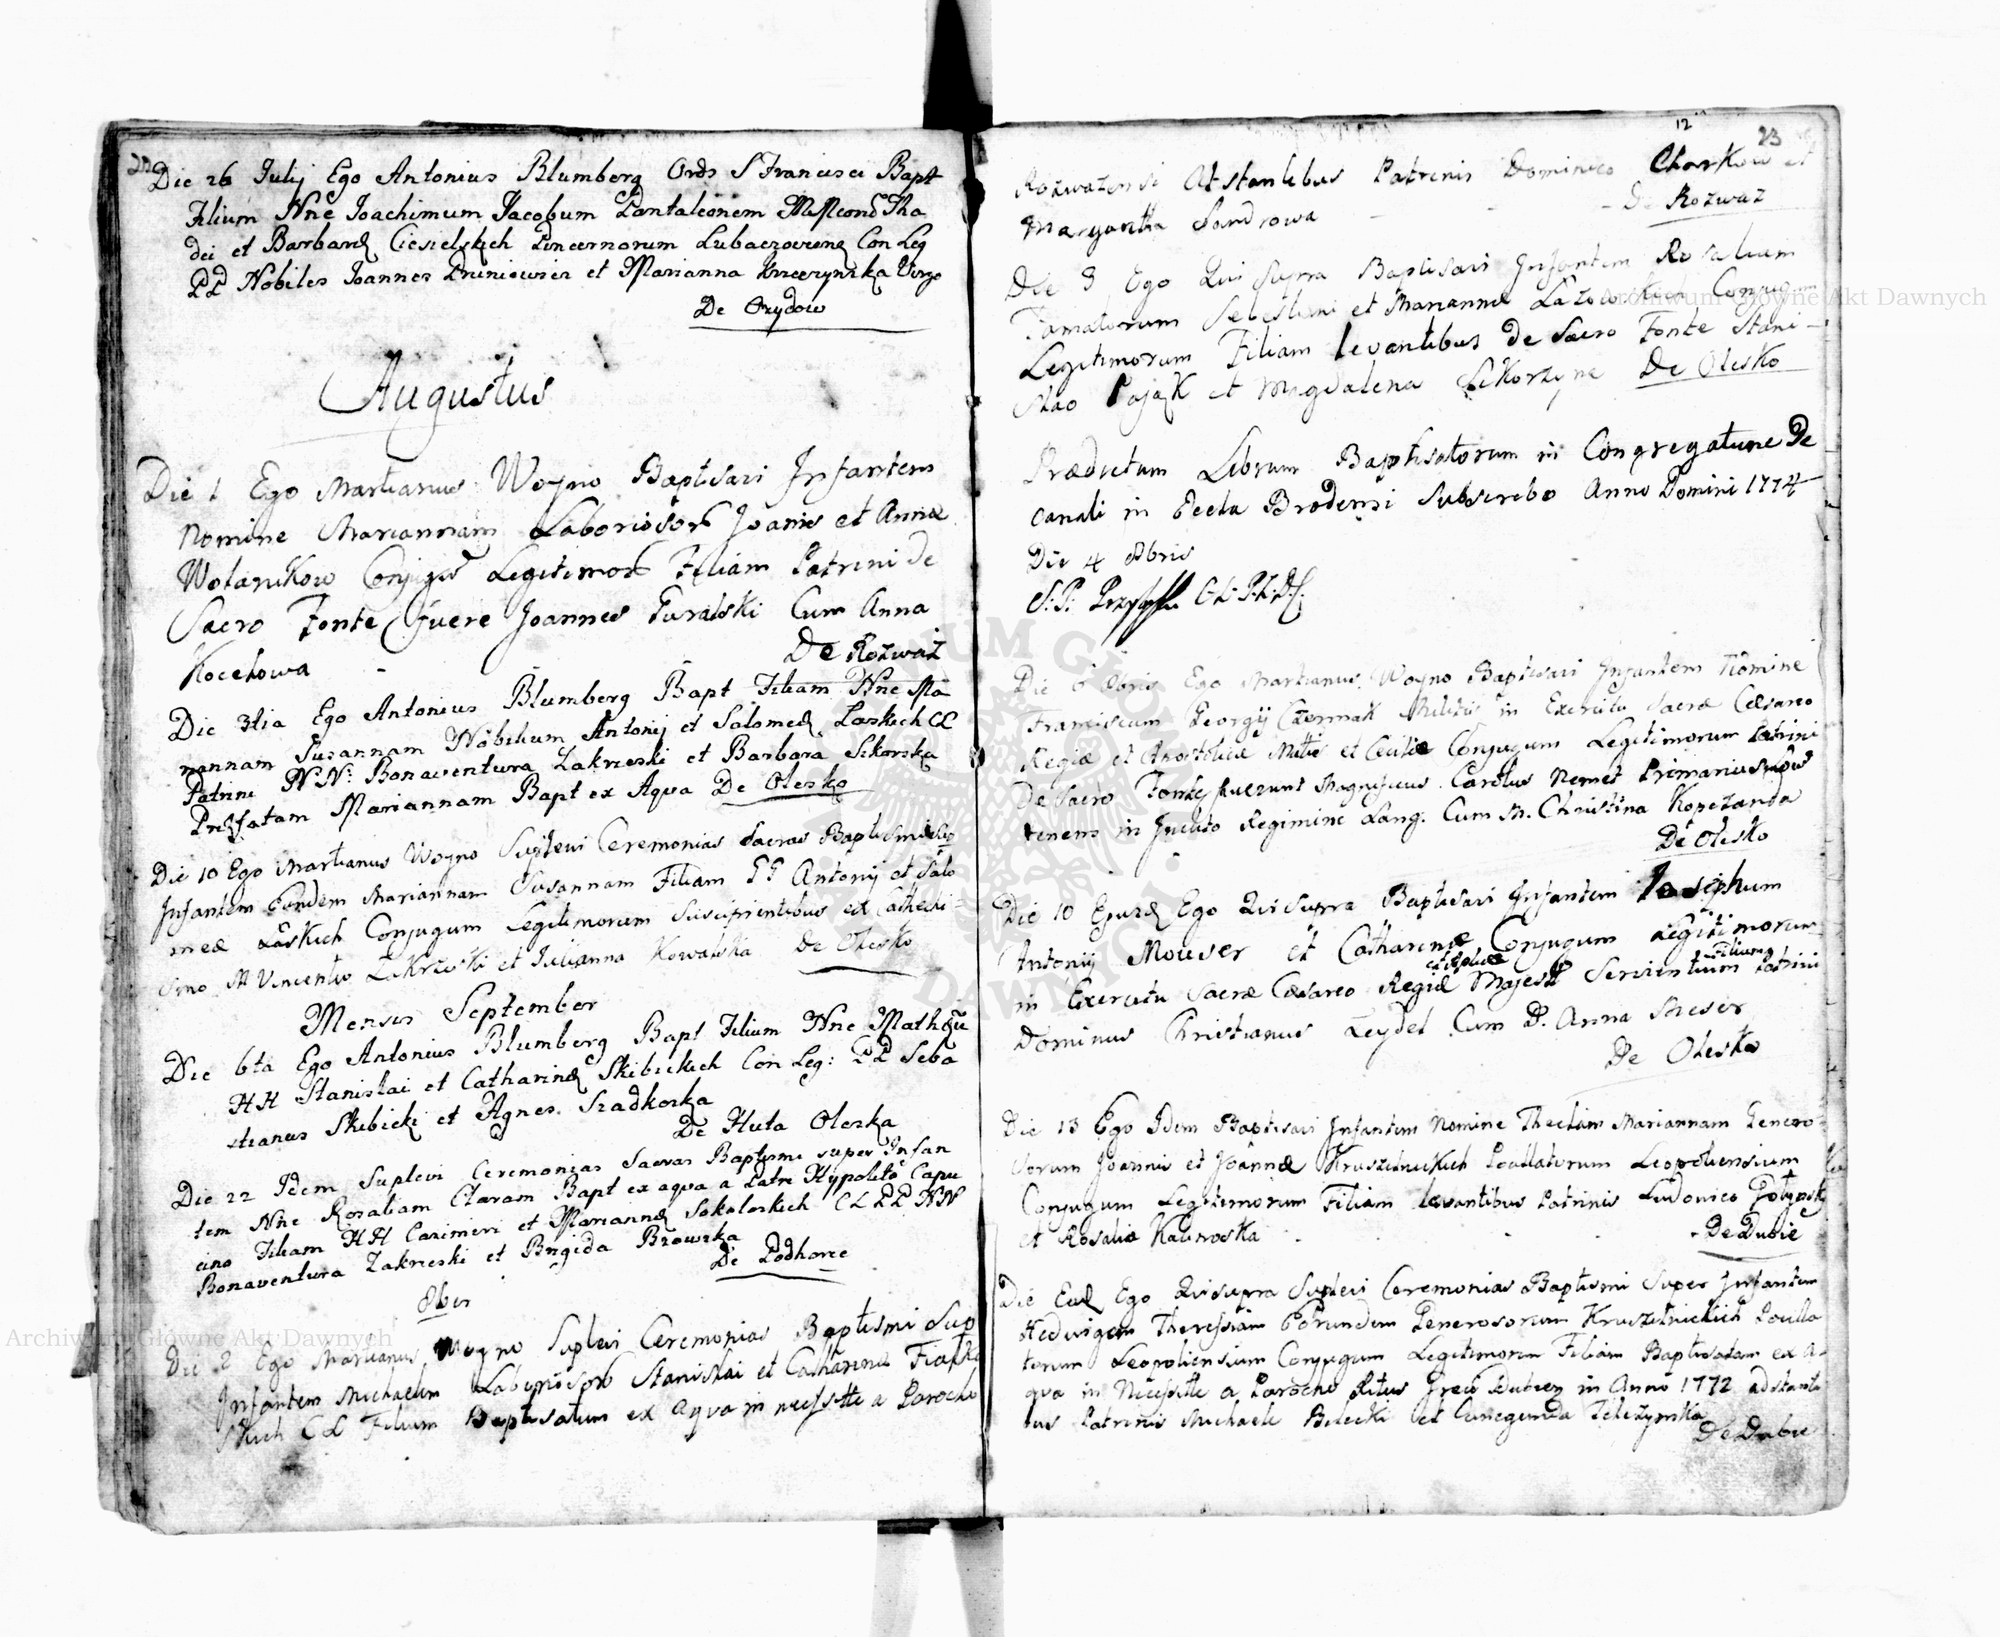 22
Die 26 Julij Ego Antonius Blumberg Ords S Francisci Bapt
Filium Nne Joachimum Jacobum Pantaleonem Tha
dei et Barbaræ Ciesielskich Pincernorum Con Leg
PP Nobiles Joannes et Marianna Virgo
De Ozydow
Augustus
Die 1 Ego Martianus Woyno Baptisavi Infantem
Nomine Mariannam Laboriosor Joanis et Annæ
Wolanikow Conjugū Legitimor Filiam Patrini de
Sacro Fonte fuere Joannes Guralski Cum Anna
Kocelowa - - De Rozwaz
Die 3tia Ego Antonius Blumberg Bapt Filiam Nne Ma
riannam Susannam Nobilium Antonij et Salomeæ Laskich CL
Patrini N:N: Bonaventura Zakrzeski et Barbara Sikorska
Præfatam Mariannam Bapt ex Aqua De Olesko
Die 10 Ego Martianus Woyno Suplevi Ceremonias Sacras Baptismi Sup
Infantem Eandem Mariannam Susannam Filiam GG Antonij et Salo
meæ Łaskich Conjugum Legitimorum Suscipientibus ex Cathechi-
smo M Vincentio Zakrzeski et Julianna Kowalska De Olesko
Mensis September
Die 6ta Ego Antonius Blumberg Bapt Filium Nne Mathæū
HH Stanislai et Catharinæ Skibickich Con Leg: PP Seba
stianus Skibicki et Agnes Szadkoska
De Huta Oleska
Die 22 Idem Suplevi Ceremonias Sacras Baptismi super Infan
tem Nne Rosaliam Claram Bapt ex aqua a Patre Hypolito Capu
cino Filiam HH Casimiri et Mariannæ Sokoloskich CL PP NN
Bonaventura Zakrzeski et Brigida Brzowska
De Podhorce
8bris
Die 2 Ego Martianus Woyno Suplevi Ceremonias Baptismi Sup
Infantem Michaelem Laboriosor Stanislai et Catharinæ
CL Filium Baptisatum ex Aqua in necesste a Parocho
12
23
Rozwazensi Atstantibus Patrinis Dominico Charkow et
Margaritha Sandrowa - - - De Rozwaz
Die 3 Ego Qui supra Baptisavi Infantem Rosaliam
Famatorum et Mariannæ Conjugum
Legitimorum Filiam levantibus de Sacro Fonte Stani-
slao Pająk et Magdalena De Olesko
Prædictum Librum Baptisatorum in Congregatione De
canali in Eccla Brodensi Subscribo Anno Domini 1774
Die 4 8bris
Die 6 8bris Ego Martianus Woyno Baptisavi Infantem Nomine
Franciscum Georgij Czermak Militis in Exercitu Sacræ Cæsareo
Regiæ et Apostolicæ Mttis et Cæciliæ Conjugum Legitimorum Patrini
De Sacro Fonte fuerunt Magnificus Carolus Nemet Primarius
tenens in Inclito Regimine Lang. Cum M. Christina
De Olesko
Die 10 Ejusd Ego Qui Supra Baptisavi Infantem Josephum
Antonij Mouser et Catharinæ Conjugum Legitimorum
Filium
in Exercitu Sacræ Cæsareo Regiæ Majestt Servientium Patrini
Dominus Christianus Leydel Cum D. Anna Meser
De Olesko
Die 13 Ego Idem Baptisavi Infantem Nomine Theclam Mariannam Genero-
sorum Joannis et Joannæ Kruszelnickich Leopoliensium
Conjugum Legitimorum Filiam levantibus Patrinis Ludovico
et Rosalia Kalinoska - - - De Dubie
Die Ead Ego Qui supra Suplevi Ceremonias Baptismi Super Infantem
Hedvigem Theressiam Eorundem Generosorum Kruszelnickich
torum Leopoliensium Conjugum Legitimorum Filiam Baptisatam ex A-
qua in Necessitte a Parocho Ritus Græci Dubien in Anno 1772 adstanti
bus Patrinis Michaele Bilecki et Cunegunda
De Dubie
Archiwum Główne Akt Dawnych
Archiwum Główne Akt Dawnych
ARCHIWUM GŁÓWNE AKT DAWNYCH